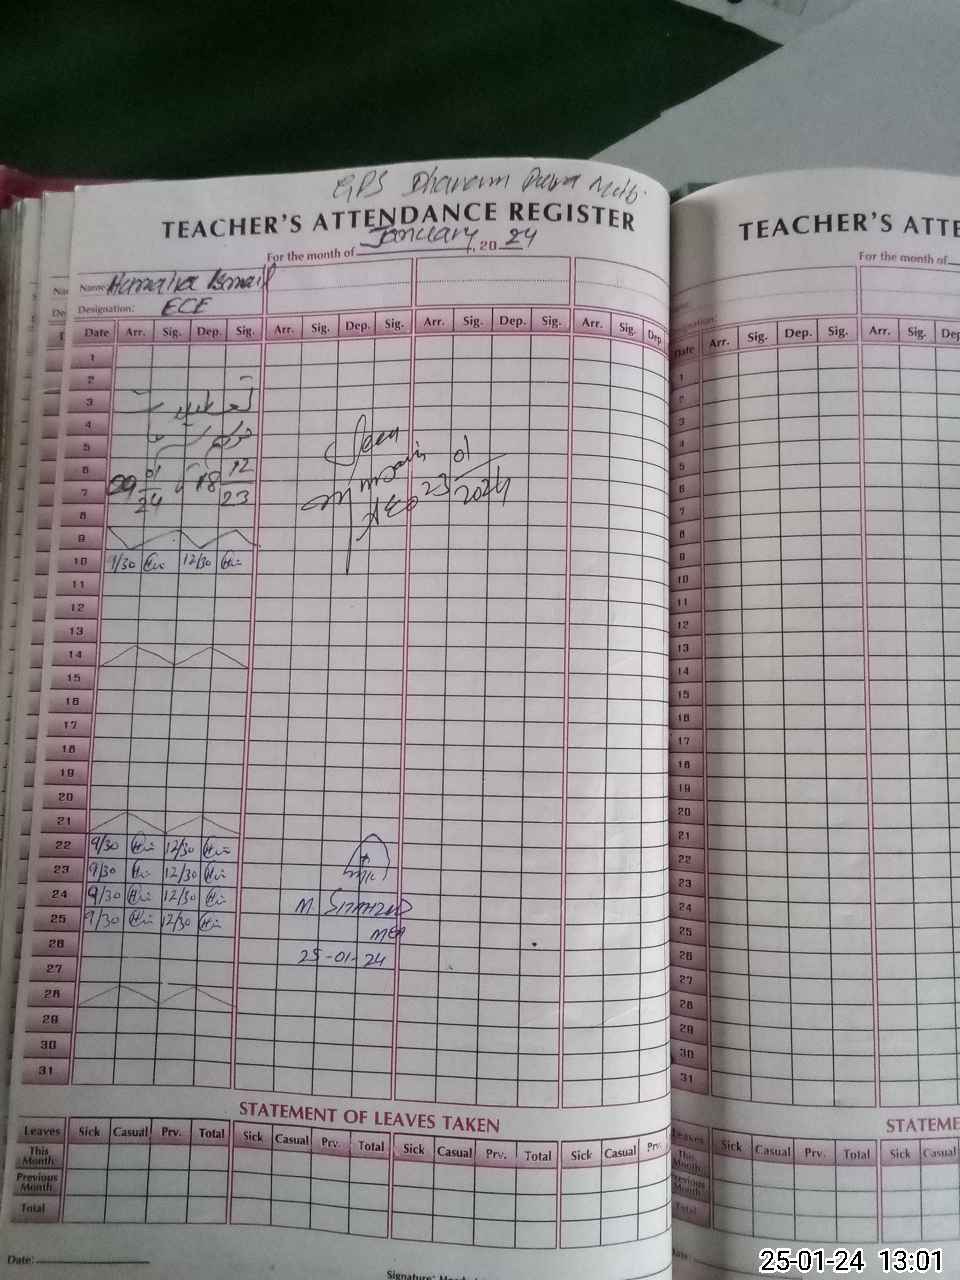 GPS Dharam Pura
TEACHER'S ATTENDANCE REGISTER
For the month of January, 20 24
Name: Humaira Ismail
Designation: ECE
Date Arr. Sig. Dep. Sig. Arr. Sig. Dep. Sig. Arr. Sig. Dep. Sig. Arr. Sig. Dep.
1
2
3
4
5
6
7
8
9
10 9/30 12/30
11
12
13
14
15
16
17
18
19
20
21
22 9/30 12/30
23 9/30 12/30
24 9/30 12/30
25 9/30 12/30
26
27
28
29
30
31
09 01/24 18 12/23
Seen
AEO 23 01/2024
M SHAHZAD
MEA
25-01-24
STATEMENT OF LEAVES TAKEN
Leaves Sick Casual Prv. Total Sick Casual Prv. Total Sick Casual Prv. Total Sick Casual Prv.
This Month
Previous Month
Total
Date:
Signature:
TEACHER'S ATTE
For the month of
Date Arr. Sig. Dep. Sig. Arr. Sig. Dep
1
2
3
4
5
6
7
8
9
10
11
12
13
14
15
16
17
18
19
20
21
22
23
24
25
26
27
28
29
30
31
STATEME
Leaves Sick Casual Prv. Total Sick Casual
This Month
Previous Month
Total
25-01-24 13:01